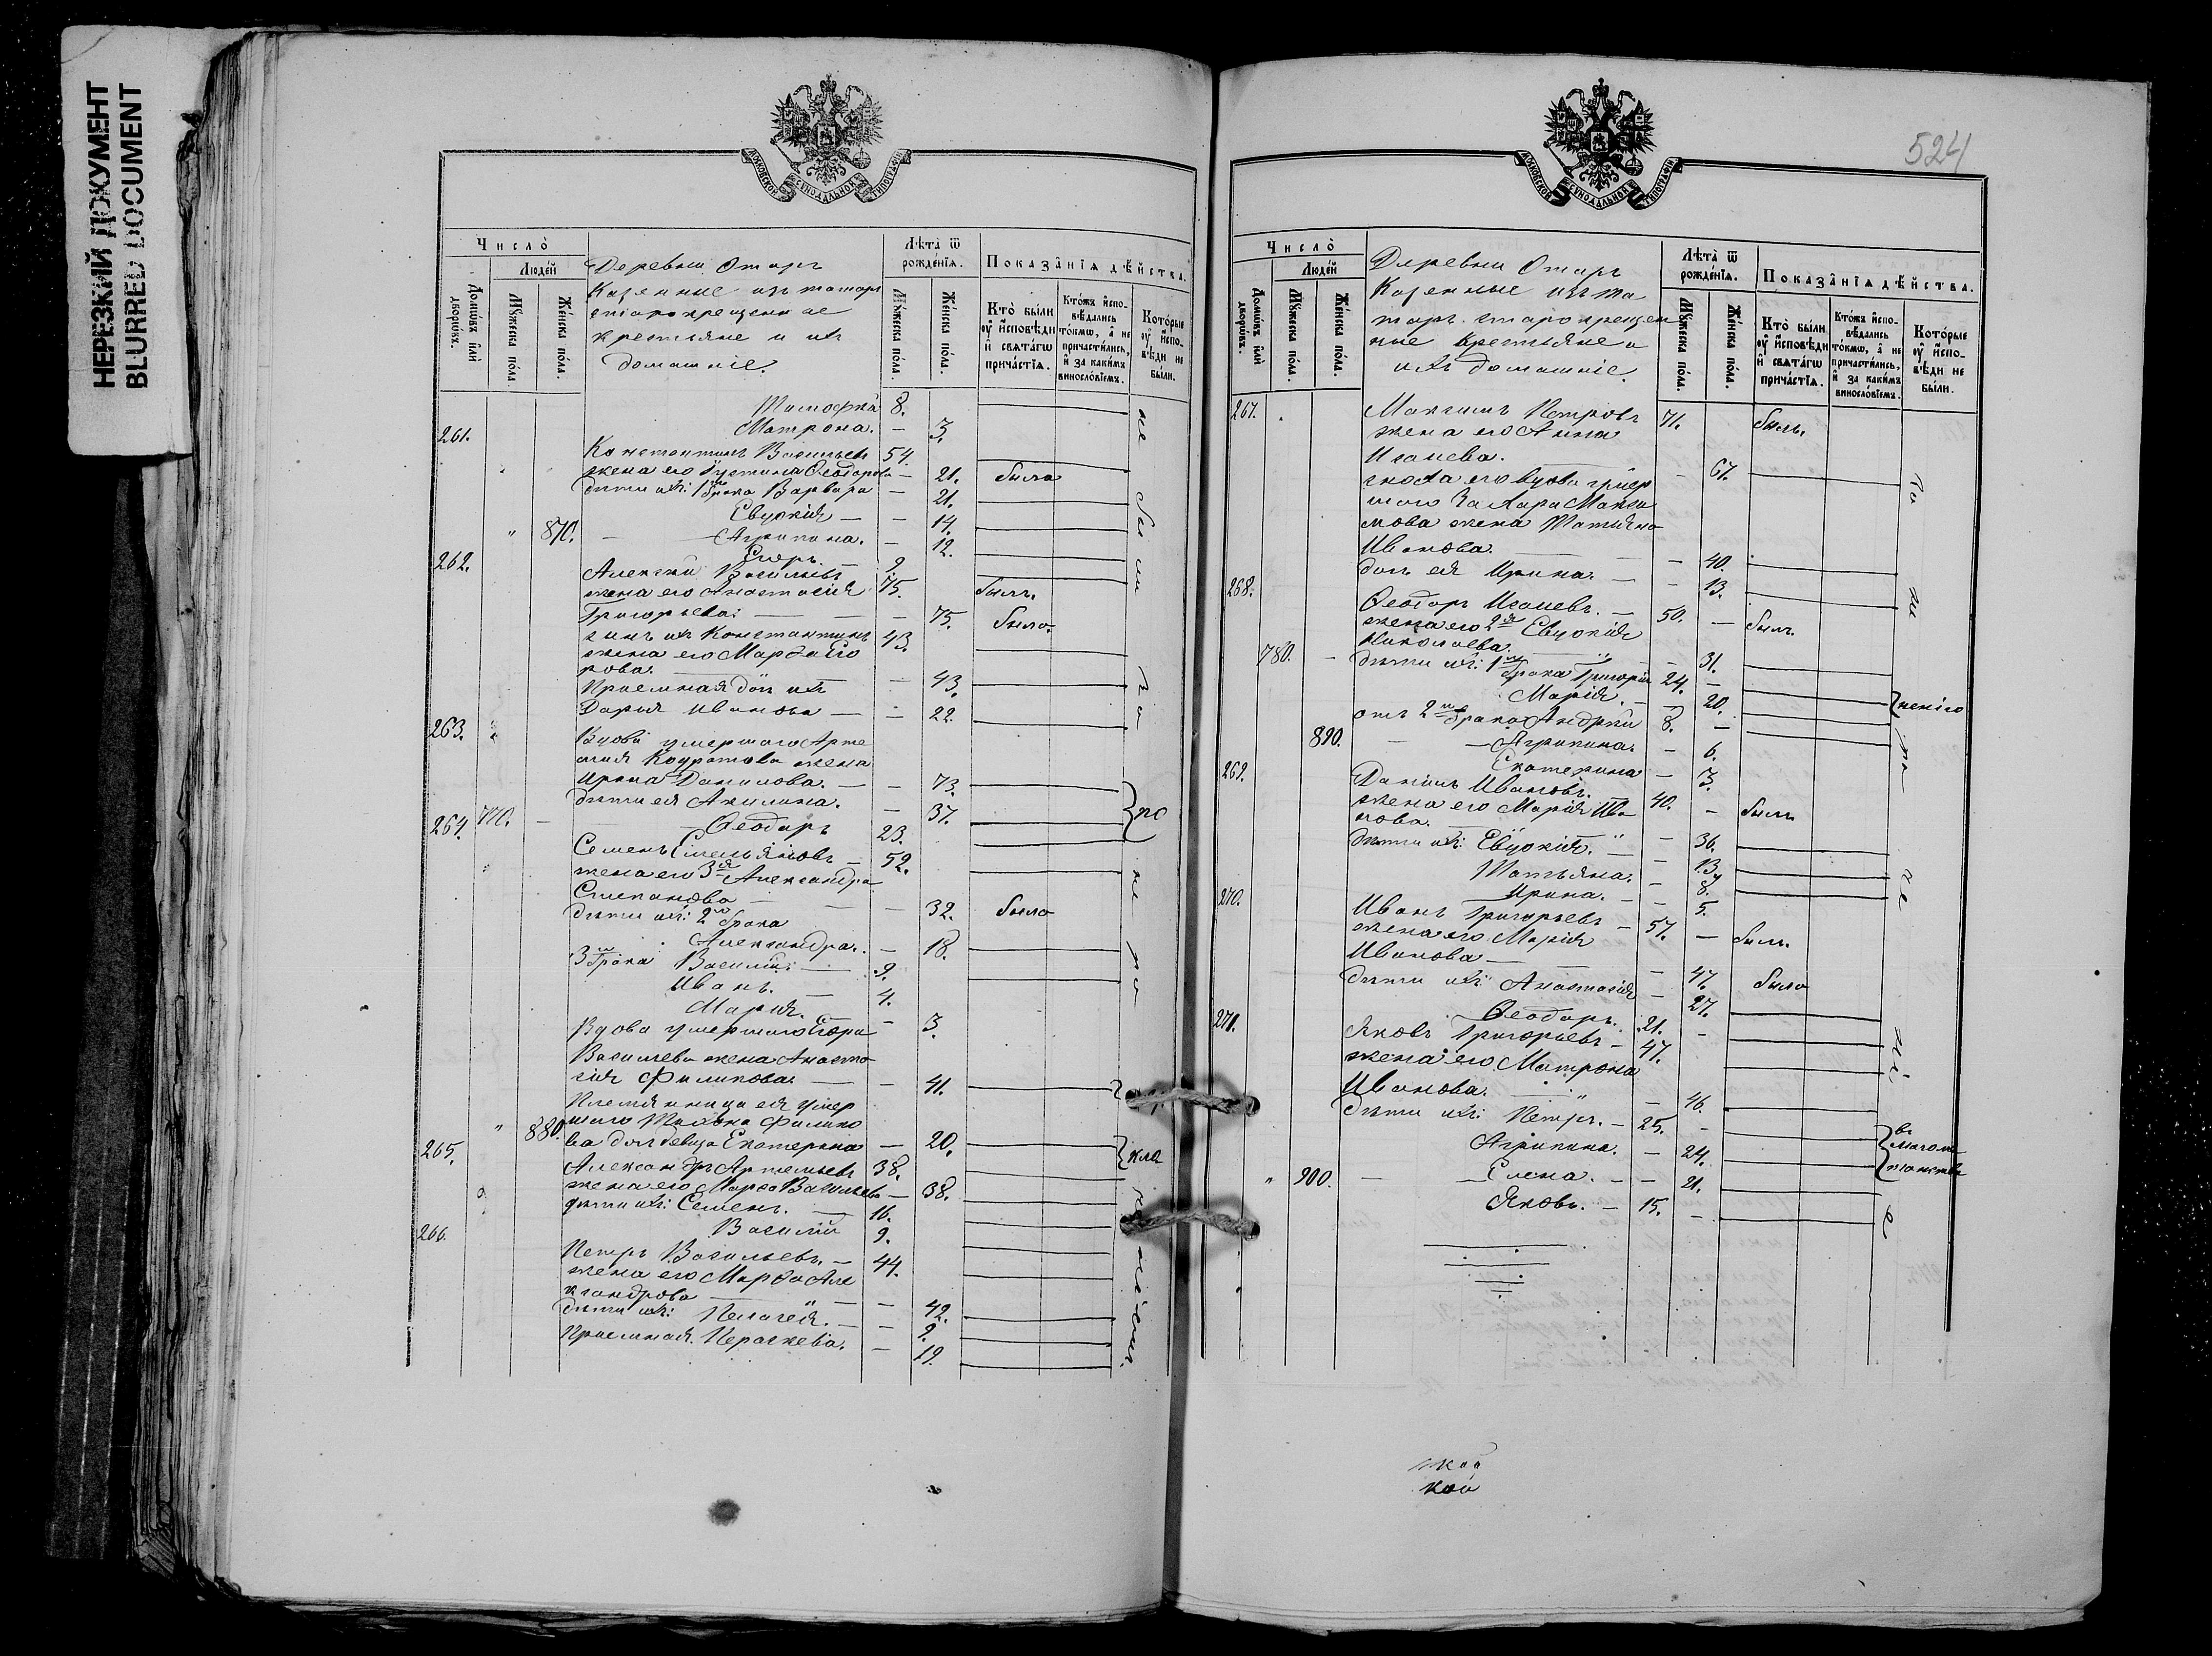 НЕРЕЗКИЙ ДОКУМЕНТ
BLURRED DOCUMENT
МОСКОВСКОЙ СѴНОДАЛЬНОЙ ТИПОГРАФІИ
Число̀
Людей
Домѡвъ и҆лѝ дворѡвъ.
Мꙋжеска пола.
Женска пола.
Деревни Отаръ
Казенные изъ татаръ
старокрещенные
крестьяне и ихъ
домашніе.
Лѣта̀ ѿ рожденїѧ.
Мꙋжеска пола.
Женска пола.
Показанїѧ дѣйства.
Кто̀ были ᲂу҆ и҆сповѣди и҆ свѧтагѡ причастїѧ.
Ктожъ и҆сповѣдались токмѡ, а҆ не причастились, и҆ за какимъ винословїемъ.
Которые ᲂу҆ и҆сповѣди не были.
Тимофей 8.
Матрона. — 3.
261.
Константинъ Васильевъ 54.
жена его Устина Ѳеодорова — 21. была
дѣти ихъ: 1го брака Варвара — 21.
Евдокія — — 14.
" 870. — Агрипина. — 12.
Егоръ. — 9.
262.
Алексѣй Васильевъ 75. былъ.
жена его Анастасія
Григорьева: — — — 75. была.
сынъ ихъ Константинъ 43.
жена его Марѳа Его
рова. — — 43.
Приемная доч ихъ
Дарья Иванова — — 22.
263.
Вдова умершаго Арте
мія Кодратова жена
Ирина Данилова. — — 73.
дѣти ея Акилина. — 37.
770. — Ѳеодоръ 23.
264.
Семенъ Емельяновъ — 52.
жена его 3я Александра
Степанова — — — 32. была
дѣти ихъ: 2го брака
Александра. — 18.
3го брака Василій — 9.
Иванъ. — 4.
Марія. — 3.
Вдова умершаго Егора
Васильева жена Анаста
сія Филипова — — 41.
Племянница ея умер
шаго Филипо
" 880. ва доч девица Екатерина — 20.
265.
Александръ Артемьевъ 38.
жена его Марѳа Васильева — 38.
дѣти ихъ: Семенъ. — 16.
Василій 9.
266.
Петръ Васильевъ. — 44.
жена его Марѳа Але
ксандрова — — — 42.
дѣти ихъ: Пелагея. — — 9.
Приемная. Параскева. — 19.
не были за не по
524
МОСКОВСКОЙ СѴНОДАЛЬНОЙ ТИПОГРАФІИ
Число̀
Людей
Домѡвъ и҆лѝ дворѡвъ.
Мꙋжеска пола.
Женска пола.
Деревни Отаръ
Казенные изъ та
таръ старокрещен
ные крестьяне и
ихъ домашніе.
Лѣта̀ ѿ рожденїѧ.
Мꙋжеска пола.
Женска пола.
Показанїѧ дѣйства.
Кто̀ были ᲂу҆ и҆сповѣди и҆ свѧтагѡ причастїѧ.
Ктожъ и҆сповѣдались токмѡ, а҆ не причастились, и҆ за какимъ винословїемъ.
Которые ᲂу҆ и҆сповѣди не были.
267.
Максимъ Петровъ 71. былъ.
жена его Анна
Исаиева. — 67.
сноха его вдова умер
шаго Захара Макси
мова жена Татьяна
Иванова. — — 40.
доч ея Ирина. — — 13.
268.
Ѳеодоръ Исаиевъ. — 50. — былъ.
жена его 2я Евдокія
Николаева. " — 31.
780. — дѣти ихъ: 1го брака Григорій 24. —
Марія. — — 20.
отъ 2го брака Андрей 8. —
890. — — Агрипина. — 6.
Екатерина — 3.
269.
Данилъ Ивановъ. 40. — былъ
жена его Марія Ива
нова. " — 36.
дѣти ихъ: Евдокія. — — 13.
Татьяна. — 8.
Ирина. — — 5.
270.
Иванъ Григорьевъ — 57. — былъ.
жена его Марія
Иванова — — — 47. была
дѣти ихъ: Анастасія — 27.
Ѳеодоръ. 21. —
271.
Яковъ Григорьевъ — 47.
жена его Матрона
Иванова. " — 46.
дѣти ихъ: Петръ. — 25. —
Агрипина. — 24.
" 900. — — Елена. — — 21.
Яковъ. — 15. —
въ
магоме
танствѣ